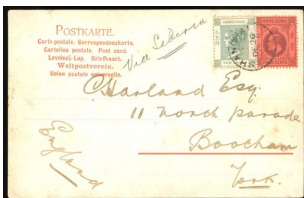 POSTKARTE.
Carte postale. Correspondenzkarta.
Cartolina postale. Post card.
Levelező-Lap. Briefkaart.
Weltpostverein.
Union postale universelle.
Via Siberia
C Harland Esq.
11 North parade
Bootham
York.
England